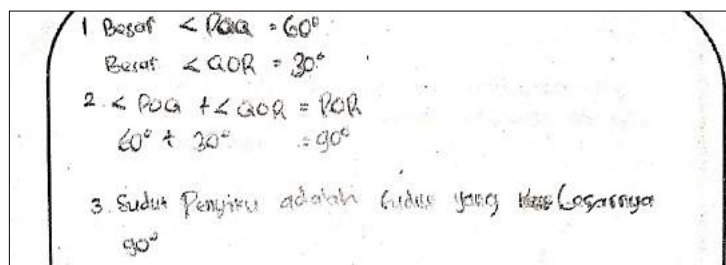 1 Besar < POQ = 60°
Besar < QOR = 30°
2. < POQ + < QOR = POR
60° + 30° = 90°
3. Sudut Penyiku adalah sudut yang besarnya
90°